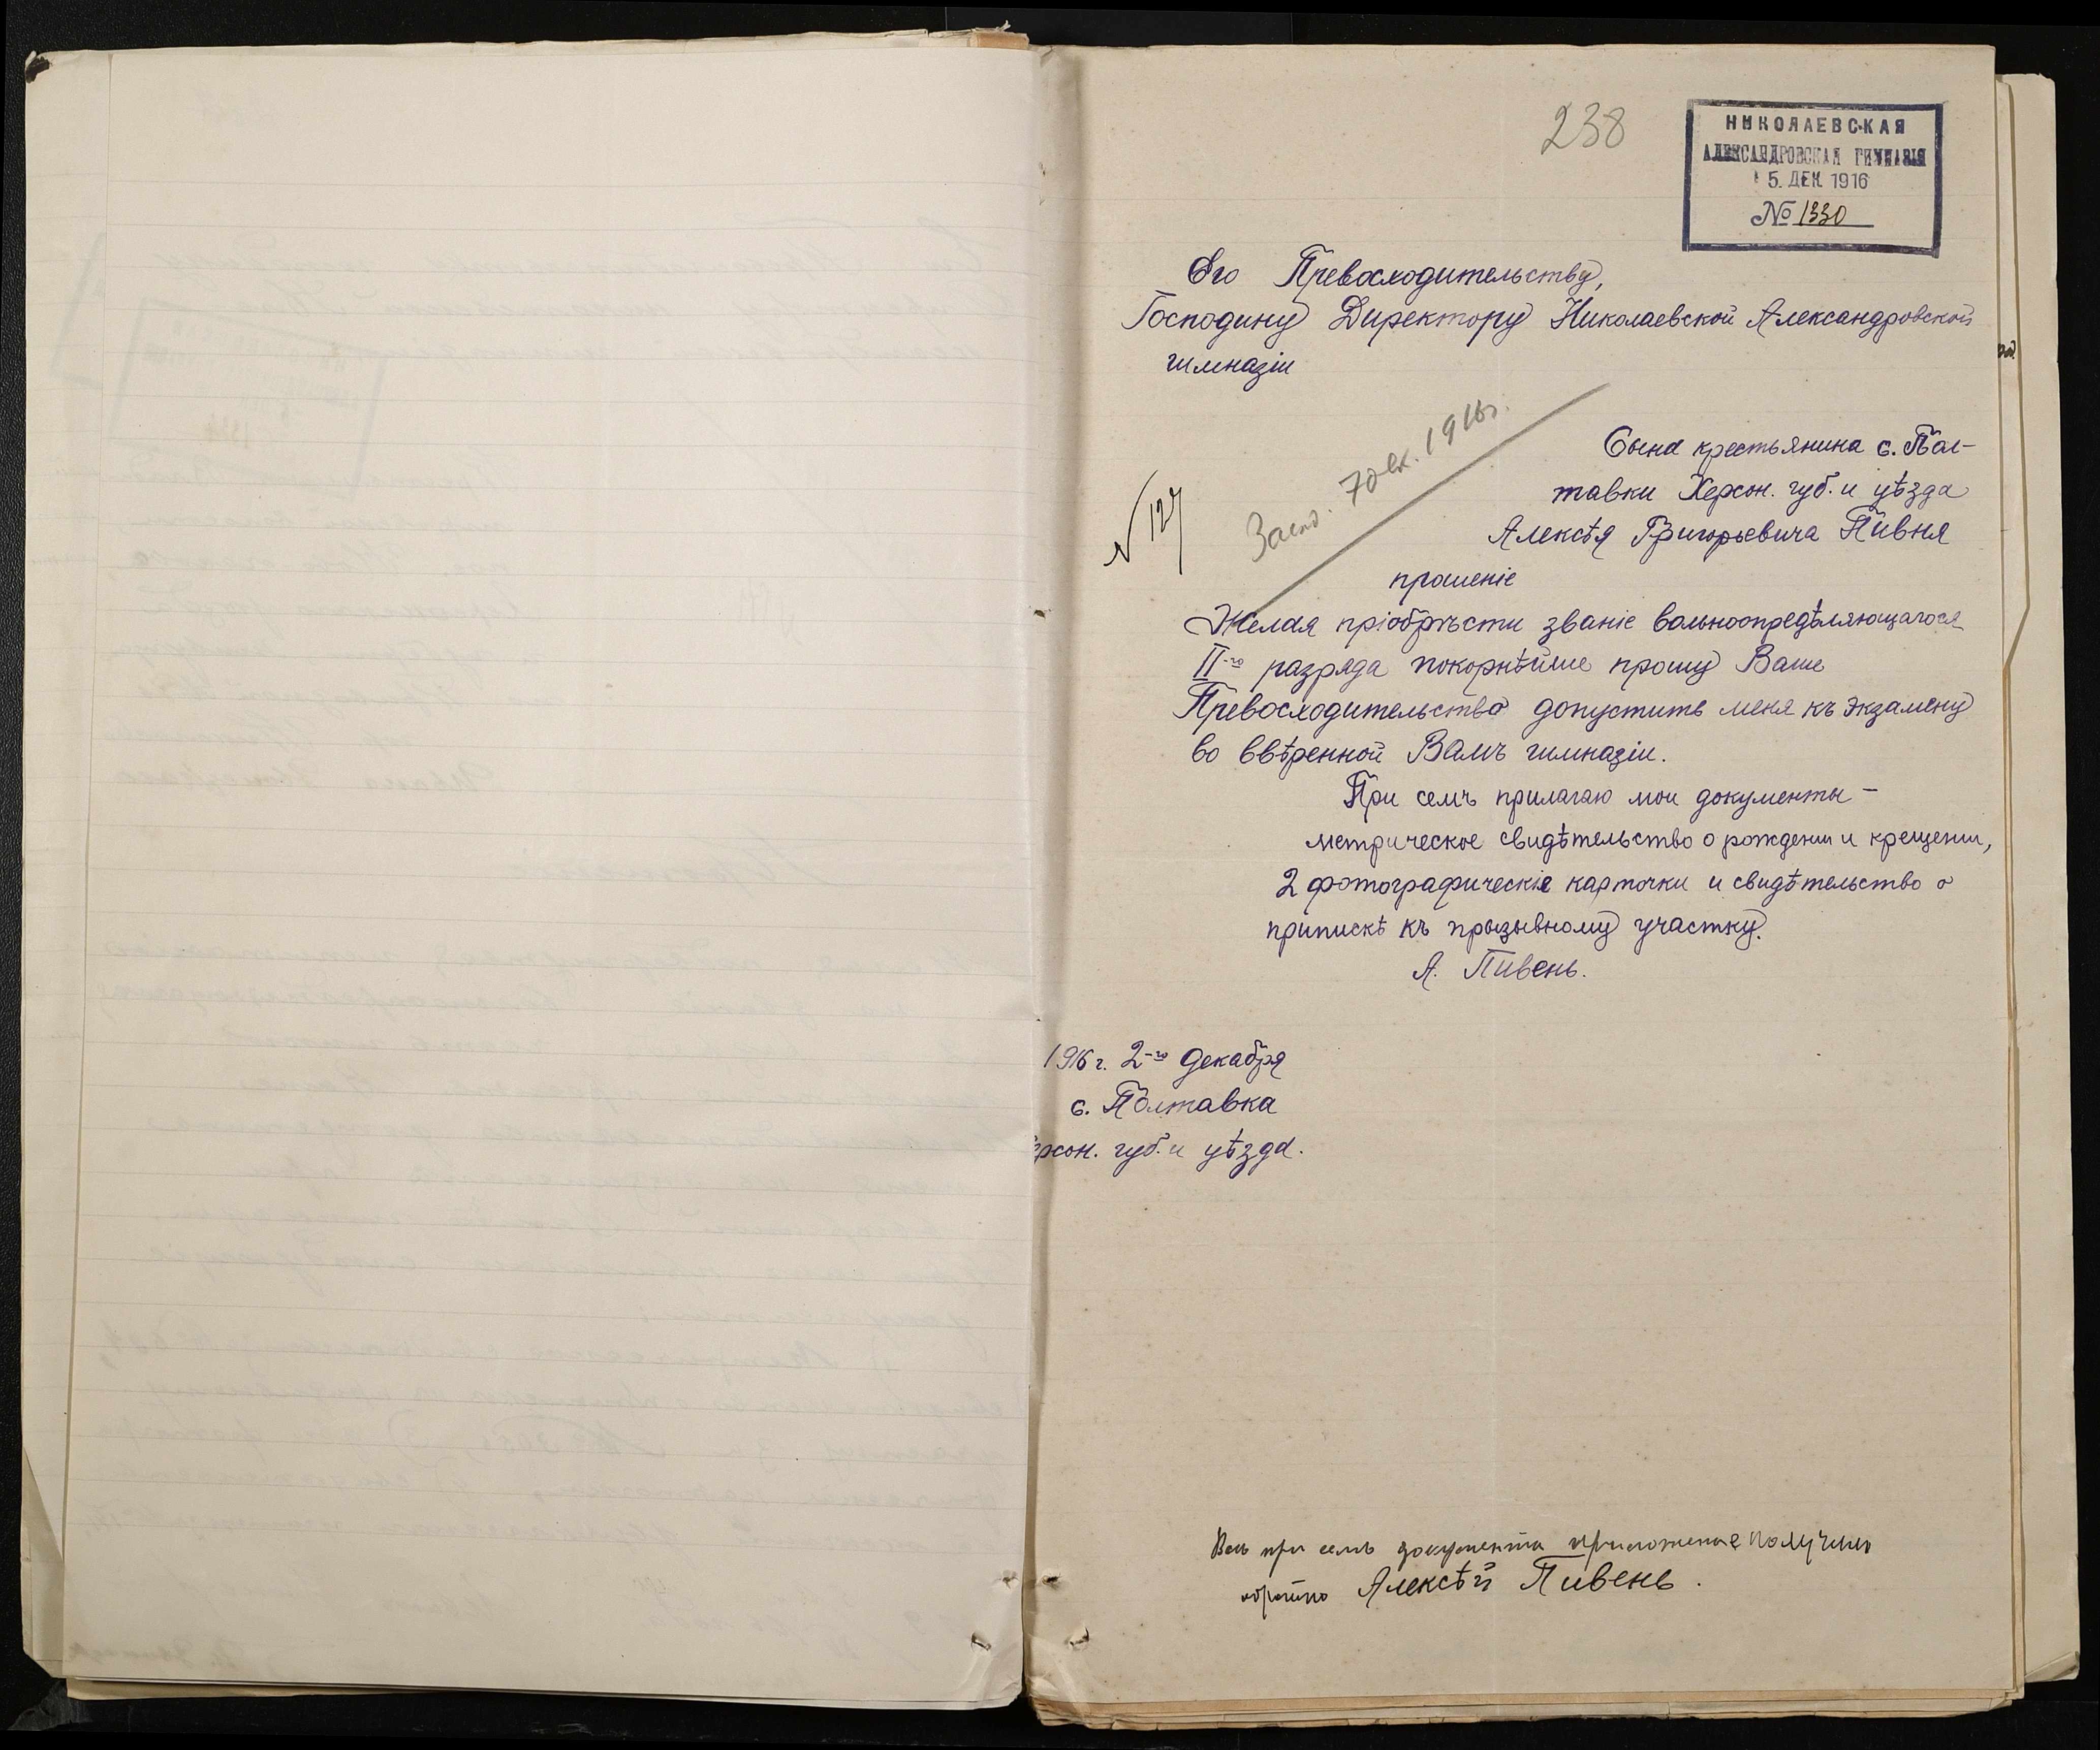 238
НИКОЛАЕВСКАЯ
АЛЕКСАНДРОВСКАЯ ГИМНАЗІЯ
5. ДЕК 1916
№ 1330
Его Превосходительству,
Господину Директору Николаевской Александровской
гимназіи
Сына крестьянина с. Пол-
тавки Херсон. губ. и уѣзда
Алексѣя Григорьевича Пивня
№ 127
Засѣд. 7 дек. 1916 г.
прошеніе
Желая пріобрѣсти званіе вольноопредѣляющагося
II-го разряда покорнѣйше прошу Ваше
Превосходительство допустить меня къ экзамену
во ввѣренной Вамъ гимназіи.
При семъ прилагаю мои документы –
метрическое свидѣтельство о рождении и крещении,
2 фотографическія карточки и свидѣтельство о
припискѣ къ призывному участку.
А. Пивень.
1916 г. 2-го декабря
с. Полтавка
ерсон. губ. и уѣзда.
Всѣ при семъ документы приложеные получилъ
обратно Алексѣй Пивень.